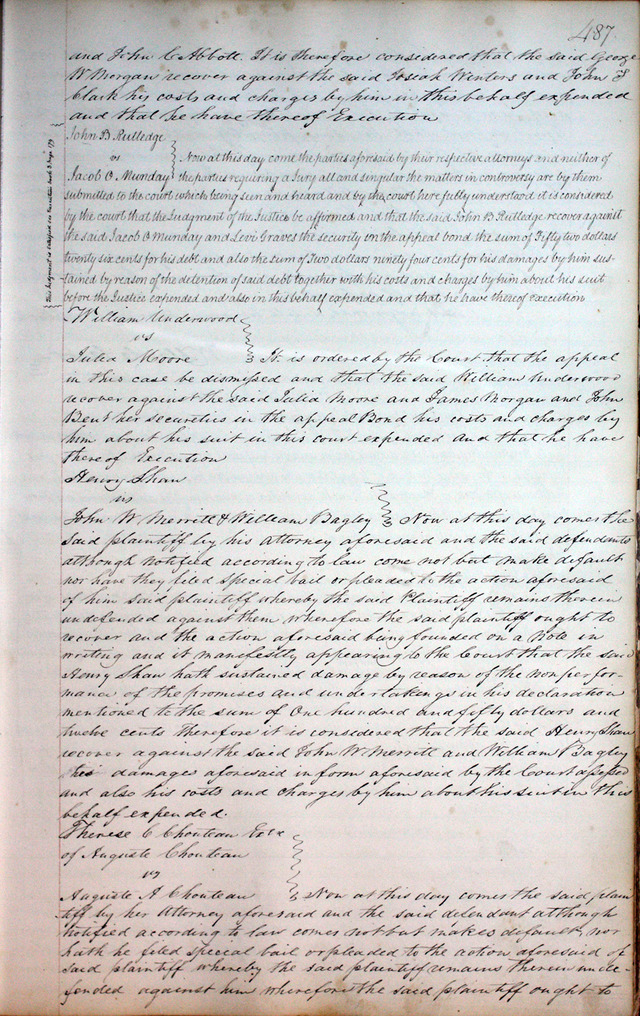 487
and John C Abbott. It is therefore considered that the said George
W Morgan recover against the said Josiah Winters and John F
Clark his costs and charges by him in this behalf expended
and that he have thereof Execution
John B Rutledge
vs
Now at this day come the parties aforesaid by their respective attorneys and neither of
Jacob O. Munday the parties requiring a Jury all and singular the matters in controversy are by them
submitted to the court which being seen and heard and by the court here fully understood it is considered
by the court that the Judgment of the Justice be affirmed and that the said John B Rutledge recover against
the said Jacob O Munday and Levi Graves the security in the appeal bond the sum of Fifty two dollars
twenty six cents for his debt and also the sum of Two dollars ninety four cents for his damages by him sus-
tained by reason of the detention of said debt together with his costs and charges by him about his suit
before the Justice expended and also in this behalf expended and that he have thereof execution
This Judgment is satisfied see Execution book 3 page 179
William Underwood
vs
Julia Moore It is ordered by the Court that the appeal
in this case be dismissed and that the said William Underwood
recover against the said Julia Moore and James Morgan and John
Bent her securities in the appeal Bond his costs and charges by
him about his suit in this court expended and that he have
thereof Execution
Henry Shaw
vs
John W Merritt & William Bagley Now at this day comes the
said plaintiff by his attorney aforesaid and the said defendants
although notified according to law come not but make default
nor have they filed special bail or pleaded to the action aforesaid
of him said plaintiff whereby the said Plaintiff remains therein
undefended against them wherefore the said plaintiff ought to
recover and the action aforesaid being founded on a Note in
writing and it manifestly appearing to the Court that the said
Henry Shaw hath sustained damage by reason of the nonperfor-
mance of the promises and undertakings in his declaration
mentioned to the sum of One hundred and fifty dollars and
twelve cents therefore it is considered that the said Henry Shaw
recover against the said John W Merritt and William Bagley
his damages aforesaid in form aforesaid by the Court assessed
and also his costs and charges by him about his suit in this
behalf expended.
Therese C Chouteau Extx
of Auguste Chouteau
vs
Auguste A Chouteau Now at this day comes the said plain
tiff by her Attorney aforesaid and the said defendant although
notified according to law comes not but makes default, nor
hath he filed special bail or pleaded to the action aforesaid of
said plaintiff whereby the said plaintiff remains therein unde-
fended against him wherefore the said plaintiff ought to